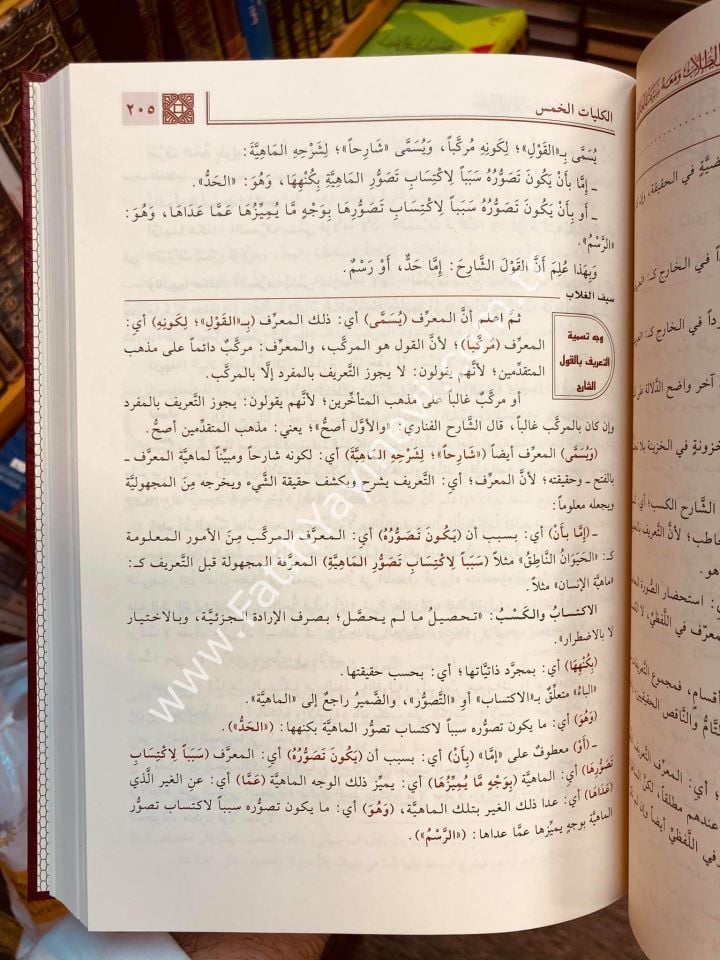 الكليات الخمس
٢٠٥
يُسَمَّى بِـ«القَوْلِ»؛ لِكَونِهِ مُركَّباً، وَيُسَمَّى «شَارِحاً»؛ لِشَرْحِهِ المَاهِيَّةَ:
ـ إِمَّا بِأَنْ يَكُونَ تَصَوُّرُهُ سَبَباً لِاكْتِسَابِ تَصَوُّرِ المَاهِيَّةِ بِكُنْهِهَا، وَهُوَ: «الحَدُّ».
ـ أَو بِأَنْ يَكُونَ تَصَوُّرُهُ سَبَباً لِاكْتِسَابِ تَصَوُّرِهَا بِوَجْهٍ مَّا يُمَيِّزُهَا عَمَّا عَدَاهَا، وَهُوَ:
«الرَّسْمُ».
وَبِهَذَا عُلِمَ أَنَّ القَوْلَ الشَّارِحَ: إِمَّا حَدٌّ، أَوْ رَسْمٌ.
سيف الغلاب
وجه تسمية
التعريف بالقول
الشارح
ثمَّ اعلم أنَّ المعرِّف (يُسَمَّى) أي: ذلك المعرِّف (بِـ«القَوْلِ»؛ لِكَونِهِ) أي:
المعرِّف (مُركَّباً)؛ لأنَّ القول هو المركَّب، والمعرِّف: مركَّبٌ دائماً على مذهب
المتقدِّمين؛ لأنَّهم يقولون: لا يجوز التَّعريف بالمفرد إلَّا بالمركَّب.
أو مركَّبٌ غالباً على مذهب المتأخِّرين؛ لأنَّهم يقولون: يجوز التَّعريف بالمفرد
وإن كان بالمركَّب غالباً، قال الشَّارح الفناري: «والأوَّل أصحُّ»؛ يعني: مذهب المتقدِّمين أصحُّ.
(وَيُسَمَّى) المعرِّف أيضاً («شَارِحاً»؛ لِشَرْحِهِ المَاهِيَّةَ) أي: لكونه شارحاً ومبيِّناً لماهية المعرَّف ـ
بالفتح ـ وحقيقته؛ لأنَّ المعرِّف؛ أي: التَّعريف يشرح ويكشف حقيقة الشَّيء ويخرجه مِنَ المجهوليَّة
ويجعله معلوماً:
ـ (إِمَّا بِأَنْ) أي: بسبب أن (يَكُونَ تَصَوُّرُهُ) أي: المعرِّف المركَّب مِنَ الأمور المعلومة
كـ: «الحَيَوَانُ النَّاطِقُ» مثلاً (سَبَباً لِاكْتِسَابِ تَصَوُّرِ المَاهِيَّةِ) المعرَّفة المجهولة قبل التَّعريف كـ:
«ماهيَّة الإنسان» مثلاً.
الاكتسابُ والكَسْبُ: «تحصيلُ ما لم يحصَّل؛ بصرف الإرادة الجزئيَّة، وبالاختيار
لا بالاضطرار».
(بِكُنْهِهَا) أي: بمجرَّد ذاتيَّاتها؛ أي: بحسب حقيقتها.
الباءُ متعلِّقٌ بـ«الاكتساب» أو «التَّصوُّر»، والضَّميرُ راجعٌ إلى «الماهية».
(وَهُوَ) أي: ما يكون تصوره سبباً لاكتساب تصوُّر الماهيَّة بكنهها: («الحَدُّ»).
ـ (أَوْ) معطوفٌ على «إمَّا» (بِأَنْ) أي: بسبب أن (يَكُونَ تَصَوُّرُهُ) أي: المعرِّف (سَبَباً لِاكْتِسَابِ
تَصَوُّرِهَا) أي: الماهيَّة (بِوَجْهٍ مَّا يُمَيِّزُهَا) أي: يميِّز ذلك الوجه الماهيَّة (عَمَّا) أي: عنِ الغير الَّذي
(عَدَاهَا) أي: عدا ذلك الغير بتلك الماهيَّة، (وَهُوَ) أي: ما يكون تصوُّره سبباً لاكتساب تصوُّر
الماهيَّة بوجهٍ يميِّزها عمَّا عداها: («الرَّسْمُ»).